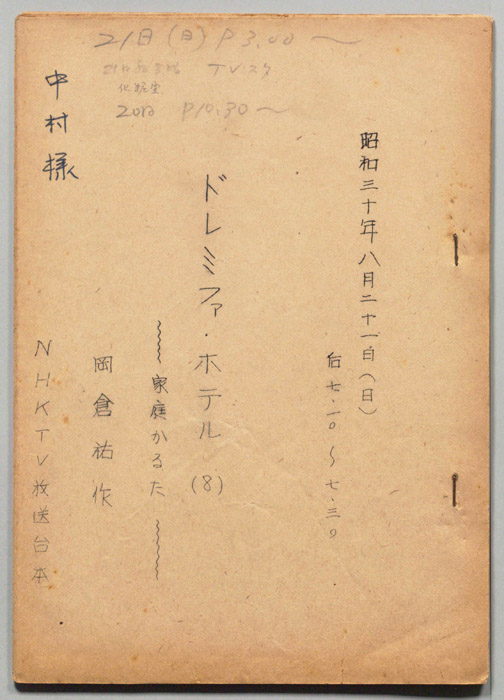 21日(日) P3.00〜
TV.スタ
化粧室
20日 P10.30〜
昭和三十年八月二十一日(日)
后七.一〇〜七.三〇
ドレミファ・ホテル (8)
家庭かるた
岡倉祐作
中村様
NHKTV放送台本